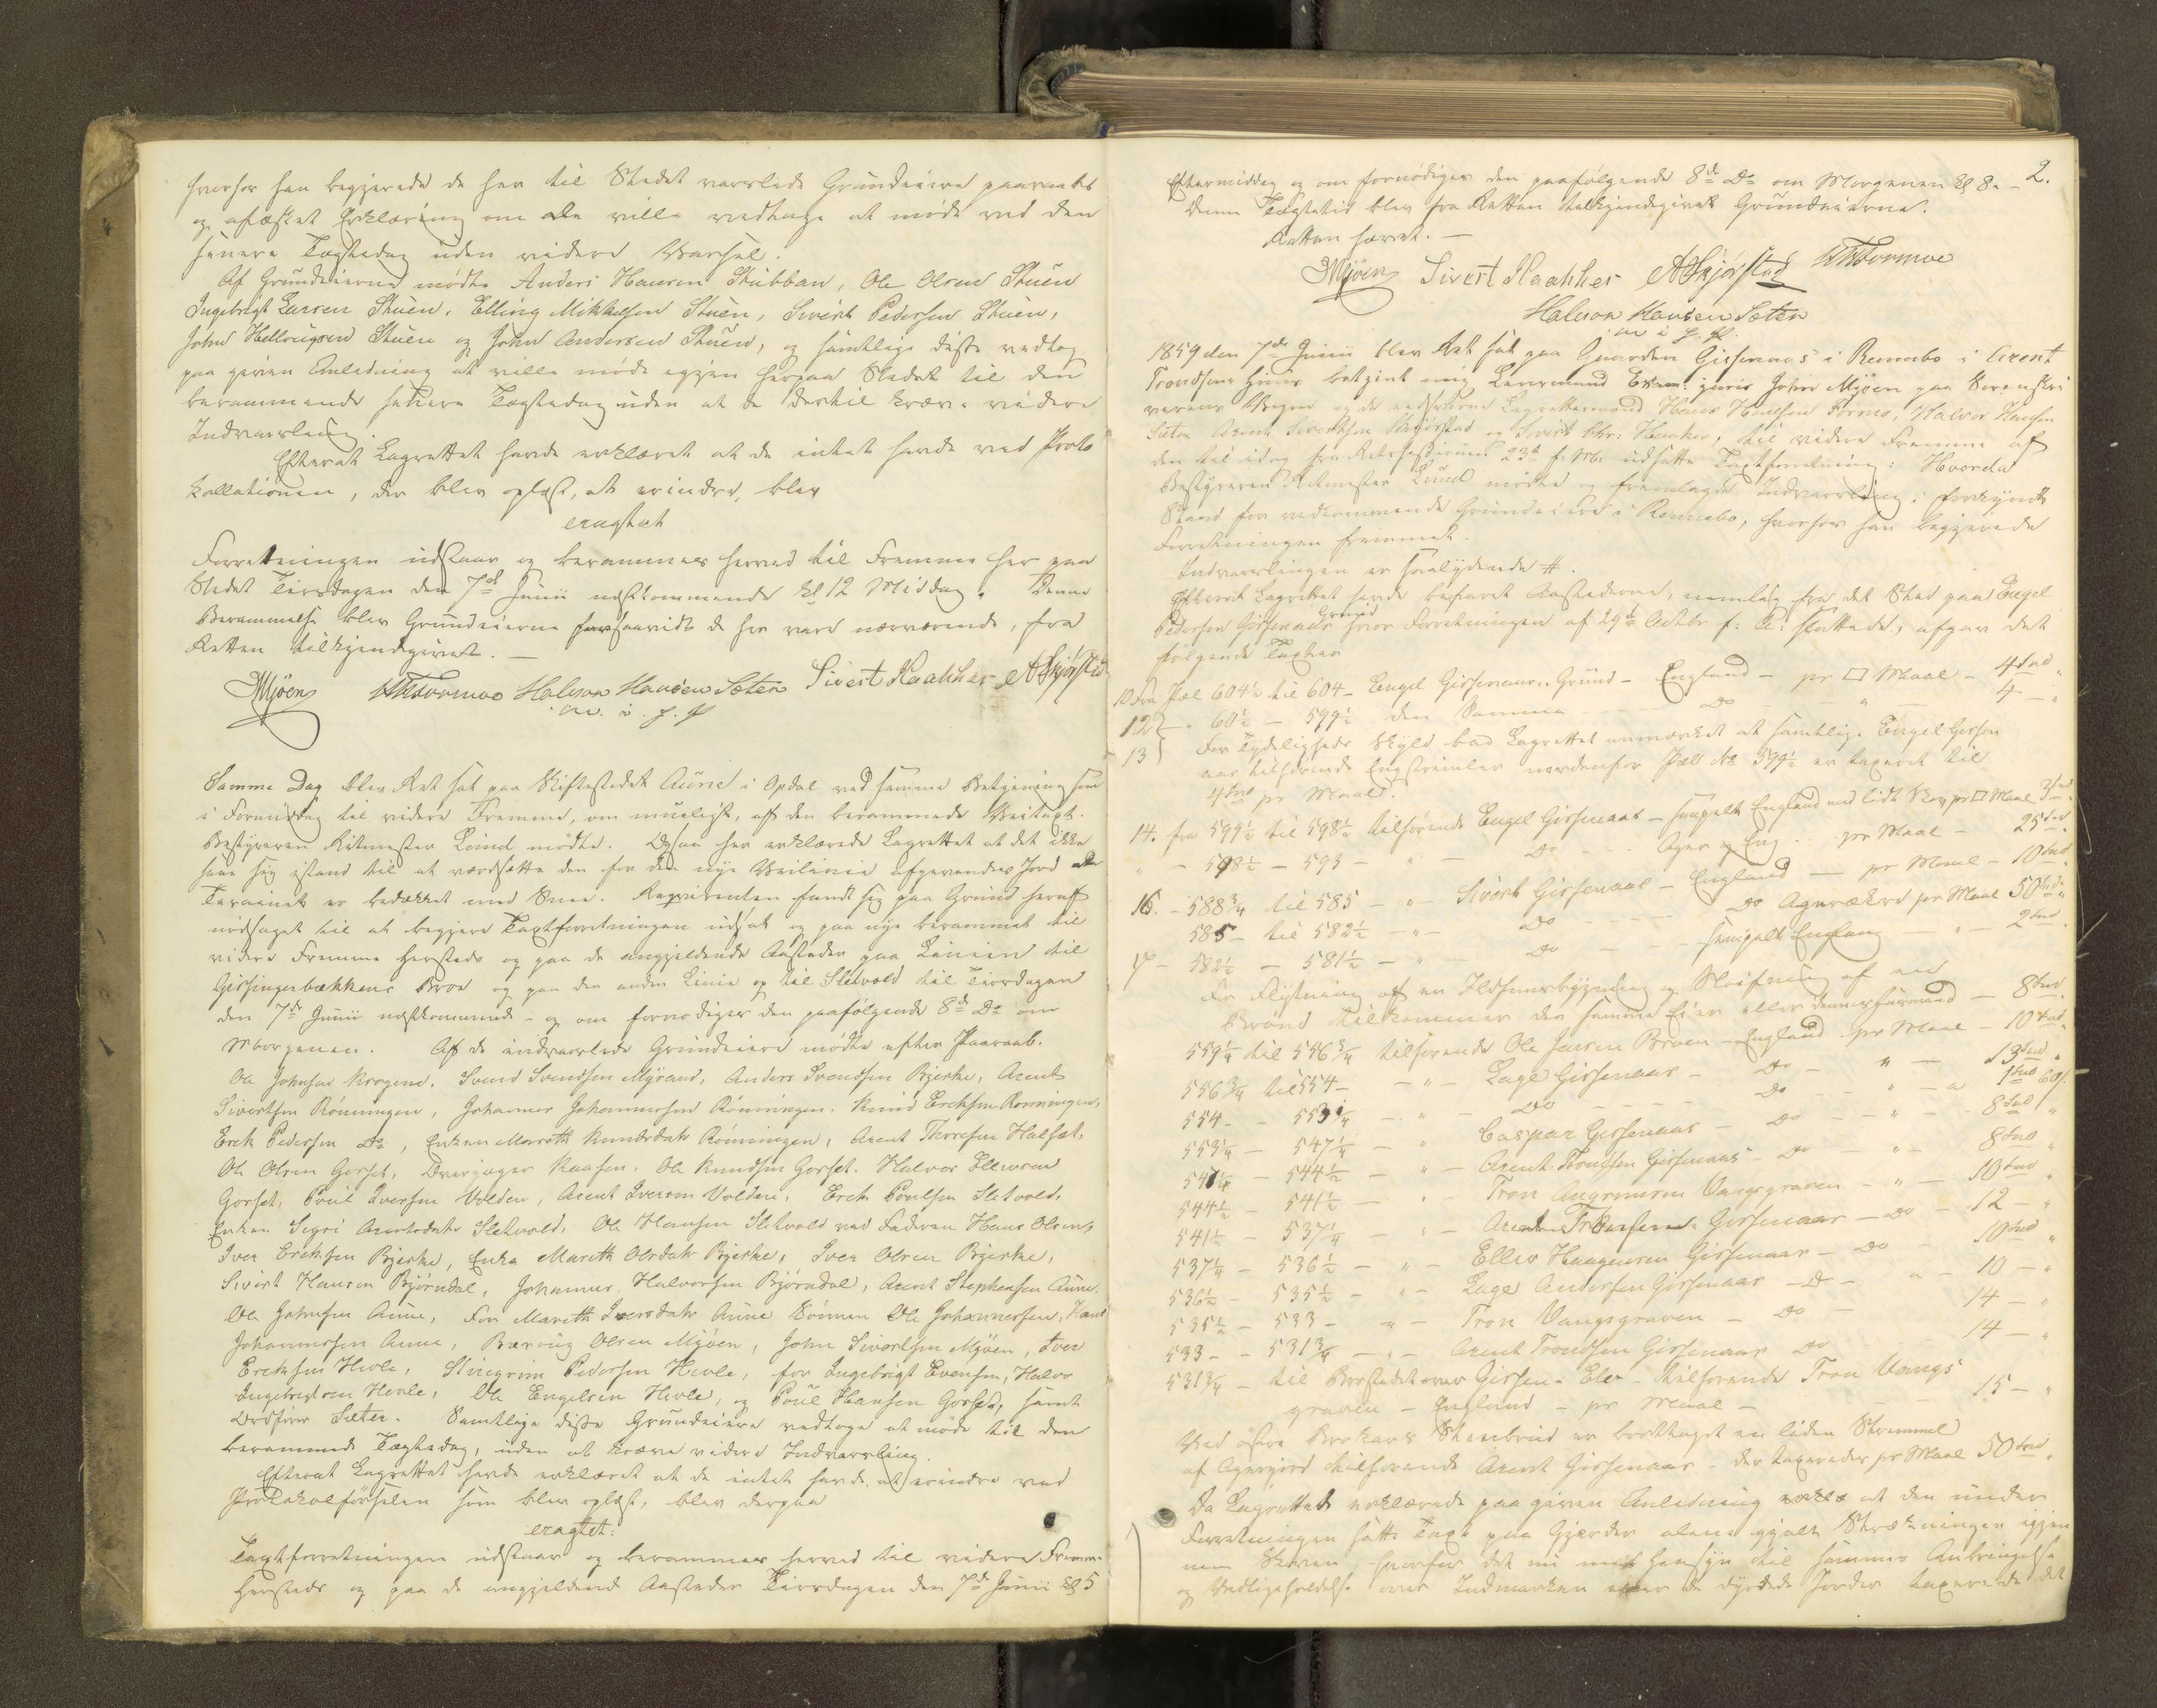 hvorfor han begjærede de her til Stedet varslede Grundeiere paaraabt
og æsket Erklæring om de ville vedtage at møde ved den
senere Tægtedag uden videre Varsel.
Af Grundeierne mødte Anders Hansen Stubban, Ole Olsen Stuen
Ingebrigt Larsen Stuen, Elling Mikkelsen Stuen, Sivert Pedersen Stuen,
John Stuen og John Andersen Stuen, og samtlige disse vedtog
paa given Anledning at ville møde igjen herpaa Stedet til den
berammende senere Tægtedag uden at de dertil kræve videre
Indvarsling.
Efterat Lagrettet havde erklæret at de intet havde ved Proto
kollationen, der blev oplæst, at erindre, blev
eragtet
Forretningen udstaar og berammes herved til Fremme her paa
Stedet Tirsdagen den 7de Junii næstkommende Kl 12 Middag. Denne
Berammelse blev Grundeierne forsaavidt de her vare nærværende, fra
Retten tilkjendegivet. —
Mjöen Halvor Hansen Sæter Sivert Haakker A Skjørstad
m. i. P. P
Samme Dag blev Ret sat paa Skiftestedet Aune i Opdal ved samme Betjening som
i Formiddag til videre Fremme, om mueligt, af den berammede Veitaxt.
Bestyreren Ritmester Lund mødte. Ogsaa her erklærede Lagrettet at det ikke
saae sig istand til at værdsætte den for den nye Veilinie afgivendes Jord da
Terrainet er bedækket med Snee. Reqvirenten fandt sig paa Grund heraf
nødsaget til at begjere Taxtforretningen udsat og paa nye berammet til
videre Fremme hersteds og paa de angjeldende Aasteder paa Linien til
Gissingerbækkens Broe og paa den anden Linie op til Sletvold til Tirsdagen
den 7de Junii næstkommende - og om fornødiges den paafølgende 8de Do om
Morgenen. Af de indvarslede Grundeiere mødte efter Paaraab.
Ole Johnsen Krogene, Svend Svendsen Myraue, Anders Svendsen Bjerke, Arent
Sivertsen Rönningen, Johannes Johannessen Rönningen, Knud Ericksen Rönningen,
Erek Pedersen Do, Enken Mareth Knudsdatr Rönningen, Arent Thoresen Halset,
Ole Olsen Gorset, Kaasen, Ole Knudsen Gorset, Halvor Ellevsen
Gorset, Poul Iversen Volden, Arent Iversen Volden, Erek Poulsen Sletvold,
Enken Sigri Arentsdatr Sletvold, Ole Hansen Sletvold ved Faderen Hans Olsen,
Iver Ericksen Bjerke, Enke Mareth Olsdatr Bjerke, Iver Olsen Bjerke,
Sivert Hansen Björndal, Johannes Halvorsen Björndal, Arent Stephensen Aune,
Ole Johnsen Aune, For Mareth Iversdatr Aune Sönnen Ole Johannessen, Hans
Johannessen Aune, Olsen Mjöen, John Sivertsen Mjöen, Iver
Ericksen Hevle, Pedersen Hevle, for Ingebrigt Evensen, Halvor
Ingebrigtsen Hevle, Ole Engelsen Hevle, og Poul Hansen Gorset, samt
Ordfører Sæter. Samtlige disse Grundeiere vedtoge at møde til den
berammede Tægtedag, uden at kræve videre Indvarsling.
Efterat Lagrettet havde erklæret at de intet havde at erindre ved
Protokolførselen som blev oplæst, blev derpaa
eragtet:
Taxtforretningen udstaar og berammes herved til videre Fremme
hersteds og paa de angjeldende Aasteder Tirsdagen den 7de Junii Kl 5
2.
Eftermiddag og om fornødiges den paafølgende 8de Do om Morgenen Kl 8. —
Denne Tægtetid blev fra Retten tilkjendegivet Grundeierne.
Retten hævet. —
Mjöen Sivert Haakker A Skjørstad
Halvor Hansen Sæter
m i P. P.
1859 den 7de Junii blev Ret sat paa Gaarden Gissenaas i Rennebo i Arent
Trondsens Huus betjent mig Lensmand Exam: juris John Mjöen paa Sorenskri
verens Vegne og de edsvorne Lagrettesmænd Hansen
Sæter Arent Sivertsen Skjørstad og Sivert Haaker, til videre Fremme af
den til idag fra 23de f. M. udsatte Taxtforretning: Hvorda
Bestyreren Ritmester Lund mødte og fremlagde Indvarsling i forkyndt
Stand for vedkommende Grundeiere i Rennebo, hvorfor han begjerede
Forretningen fremmet.
Indvarslingen er saalydende #.
Efterat Lagrettet havde befaret Aastederne, nemlig fra det Sted paa Engel
Pedersen Gissenaas Grund hvor Forretningen af 29de Octbr f: A: sluttede, afgav det
følgende Taxter
10 Fra Pæl 604½ til 604 - Engel Gissenaas Grund - England - pr □ Maal - 4 Snd "
12 " 60½ - 599½ den Samme - Do - " 4 - "
13 For Tydeligheds Skyld bad Lagrettet anmærket at samtlige Engel Gissen
aas tilhørende Engstrimler nordenfor Pæl No 599½ er taxeret til
4 Snd pr Maal.
14. fra 599½ til 598½ tilhørende Engel Gissenaas - simpelt England med lidt Skov pr □ Maal 3 Snd
" - 598½ - 593 - " - Do - Ager og Eng - pr Maal - 25 Snd
16. - 588¾ til 585 - " - Sivert Gissenaas - England — pr Maal - 10 Snd
585 - til 582½ - " - Do - Do Agerækre pr Maal 50 Snd
582½ - 581½ - " - Do - simpelt Engeland - " - 2 Snd
For Flytning af en Ildhuusbygning og Sløifning af en
Brønd tilkommer den samme Eier eller dennes Formand - 8 Snd
559¼ til 556¾ tilhørende Ole Jansen Broen - England pr Maal - 10 Snd
556¾ til 554 - " - Lage Gissenaas - Do - " - 13 Snd
554 - 553¼ - " - Do - Do - " - 1 Snd 60
553¼ - 547¼ - " Caspar Gissenaas Do - " - 8 Snd
547¼ - 544½ - " - Arent Trondsen Gissenaas - Do - " - 8 Snd
544½ - 541½ - " - Tron Vangsgraven - " - 10 Snd
541½ - 537¼ - " - Gissenaas - Do - 12 - "
537¼ - 536½ - " - Ellev Haagensen Gissenaas - Do - 10 Snd
536½ - 535½ - " - Lage Andersen Gissenaas - Do - " - 10 - "
535½ - 533 - " - Tron Vangsgraven - Do - 14 - "
533 - - 531¾ - " - Arent Trondsen Gissenaas Do 14 - "
531¾ - til Brostedet over Gissen-Elv - tilhørende Tron Vangs
graven - England - pr Maal - 15 - "
Ved øfre Brokars Steenbrud er borttaget en liden Strimmel
af Agerjord tilhørende Arent Gissenaas - der taxeredes pr Maal 50 Snd
Da Lagrettet erklærede paa given Anledning at den under
Forretningen satte Taxt paa Gjerder alene gjalt Strækningen igjen
nem Skoven, hvorfor det nu med Hensyn til sammes Anbringelse
og Vedligeholdelse over Indmarken eller de dyrkede Jorder taxerede det